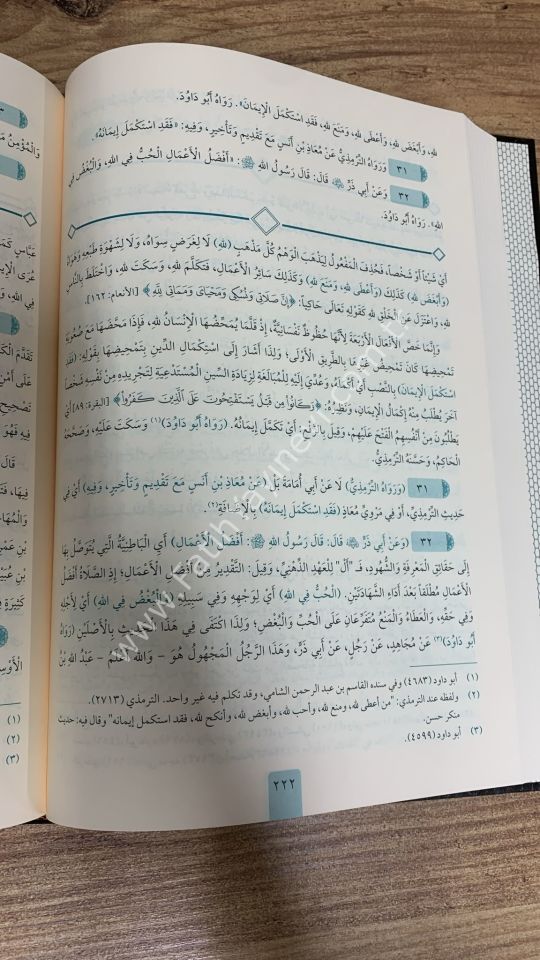 لِلهِ، وَأَبْغَضَ لِلهِ، وَأَعْطَى لِلهِ، وَمَنَعَ لِلهِ، فَقَدِ اسْتَكْمَلَ الْإِيمَانَ». رَوَاهُ أَبُو دَاوُدَ.
٣١ وَرَوَاهُ التِّرْمِذِيُّ عَنْ مُعَاذِ بْنِ أَنَسٍ مَعَ تَقْدِيمٍ وَتَأْخِيرٍ، وَفِيهِ: «فَقَدِ اسْتَكْمَلَ إِيمَانَهُ».
٣٢ وَعَنْ أَبِي ذَرٍّ ﵁ قَالَ: قَالَ رَسُولُ اللهِ ﷺ: «أَفْضَلُ الْأَعْمَالِ الْحُبُّ فِي اللهِ، وَالْبُغْضُ فِي
اللهِ». رَوَاهُ أَبُو دَاوُدَ.
أَيْ شَيْئاً أَوْ شَخْصاً، فَحُذِفَ الْمَفْعُولُ لِيَذْهَبَ الْوَهْمُ كُلَّ مَذْهَبٍ (لِلهِ) لَا لِغَرَضٍ سِوَاهُ، وَلَا لِشَهْوَةِ طَبْعِهِ وَهَوَاهُ
(وَأَبْغَضَ لِلهِ) كَذَلِكَ (وَأَعْطَى لِلهِ، وَمَنَعَ لِلهِ) وَكَذَلِكَ سَائِرُ الْأَعْمَالِ، فَتَكَلَّمَ لِلهِ، وَسَكَتَ لِلهِ، وَاخْتَلَطَ بِالنَّاسِ
لِلهِ، وَاعْتَزَلَ عَنِ الْخَلْقِ لِلهِ كَقَوْلِهِ تَعَالَى حَاكِياً: ﴿إِنَّ صَلَاتِي وَنُسُكِي وَمَحْيَايَ وَمَمَاتِي لِلَّهِ﴾ [الأنعام: ١٦٢].
وَإِنَّمَا خَصَّ الْأَفْعَالَ الْأَرْبَعَةَ لِأَنَّهَا حُظُوظٌ نَفْسَانِيَّةٌ، إِذْ قَلَّمَا يُمَحِّضُهَا الْإِنْسَانُ لِلهِ، فَإِذَا مَحَّضَهَا مَعَ صُعُوبَةِ
تَمْحِيضِهَا كَانَ تَمْحِيضُ غَيْرِهَا بِالطَّرِيقِ الْأَوْلَى؛ وَلِذَا أَشَارَ إِلَى اسْتِكْمَالِ الدِّينِ بِتَمْحِيضِهَا بِقَوْلِهِ: (فَقَدِ
اسْتَكْمَلَ الْإِيمَانَ) بِالنَّصْبِ أَيْ أَكْمَلَهُ، وَعُدِّيَ إِلَيْهِ لِلْمُبَالَغَةِ لِزِيَادَةِ السِّينِ الْمُسْتَدْعِيَةِ لِتَجْرِيدِهِ مِنْ نَفْسِهِ شَخْصاً
آخَرَ يُطْلَبُ مِنْهُ إِكْمَالُ الْإِيمَانِ، وَنَظِيرُهُ: ﴿وَكَانُوا مِن قَبْلُ يَسْتَفْتِحُونَ عَلَى الَّذِينَ كَفَرُوا﴾ [البقرة: ٨٩] أَيْ
يَطْلُبُونَ مِنْ أَنْفُسِهِمُ الْفَتْحَ عَلَيْهِمْ، وَقِيلَ بِالرَّفْعِ: أَيْ تَكَمَّلَ إِيمَانُهُ. (رَوَاهُ أَبُو دَاوُدَ) (١) وَسَكَتَ عَلَيْهِ، وَصَحَّحَهُ
الْحَاكِمُ، وَحَسَّنَهُ التِّرْمِذِيُّ.
٣١ (وَرَوَاهُ التِّرْمِذِيُّ) لَا عَنْ أَبِي أُمَامَةَ بَلْ (عَنْ مُعَاذِ بْنِ أَنَسٍ مَعَ تَقْدِيمٍ وَتَأْخِيرٍ، وَفِيهِ) أَيْ فِي
حَدِيثِ التِّرْمِذِيِّ، أَوْ فِي مَرْوِيِّ مُعَاذٍ (فَقَدِ اسْتَكْمَلَ إِيمَانَهُ) بِالْإِضَافَةِ(٢).
٣٢ (وَعَنْ أَبِي ذَرٍّ ﵁ قَالَ: قَالَ رَسُولُ اللهِ ﷺ: أَفْضَلُ الْأَعْمَالِ) أَيِ الْبَاطِنِيَّةُ الَّتِي يُتَوَصَّلُ بِهَا
إِلَى حَقَائِقِ الْمَعْرِفَةِ وَالشُّهُودِ، فَـ "أَلْ" لِلْعَهْدِ الذِّهْنِيِّ، وَقِيلَ: التَّقْدِيرُ مِنْ أَفْضَلِ الْأَعْمَالِ؛ إِذِ الصَّلَاةُ أَفْضَلُ
الْأَعْمَالِ مُطْلَقاً بَعْدَ أَدَاءِ الشَّهَادَتَيْنِ. (الْحُبُّ فِي اللهِ) أَيْ لِوَجْهِهِ وَفِي سَبِيلِهِ (وَالْبُغْضُ فِي اللهِ) أَيْ لِأَجْلِهِ
وَفِي حَقِّهِ، وَالْعَطَاءُ وَالْمَنْعُ مُتَفَرِّعَانِ عَلَى الْحُبِّ وَالْبُغْضِ؛ وَلِذَا اكْتَفَى فِي هَذَا الْحَدِيثِ بِالْأَصْلَيْنِ (رَوَاهُ
أَبُو دَاوُدَ)(٣) عَنْ مُجَاهِدٍ، عَنْ رَجُلٍ، عَنْ أَبِي ذَرٍّ، وَهَذَا الرَّجُلُ الْمَجْهُولُ هُوَ – وَاللهُ أَعْلَمُ – عَبْدُ اللهِ بْنُ
(١) أبو داود (٤٦٨٣) وفي سنده القاسم بن عبد الرحمن الشامي، وقد تكلم فيه غير واحد. الترمذي (٢٧١٣).
(٢) ولفظه عند الترمذي: "من أعطى لله، ومنع لله، وأحب لله، وأبغض لله، وأنكح لله، فقد استكمل إيمانه" وقال فيه: حديث
منكر حسن.
(٣) أبو داود (٤٥٩٩).
٢٢٢